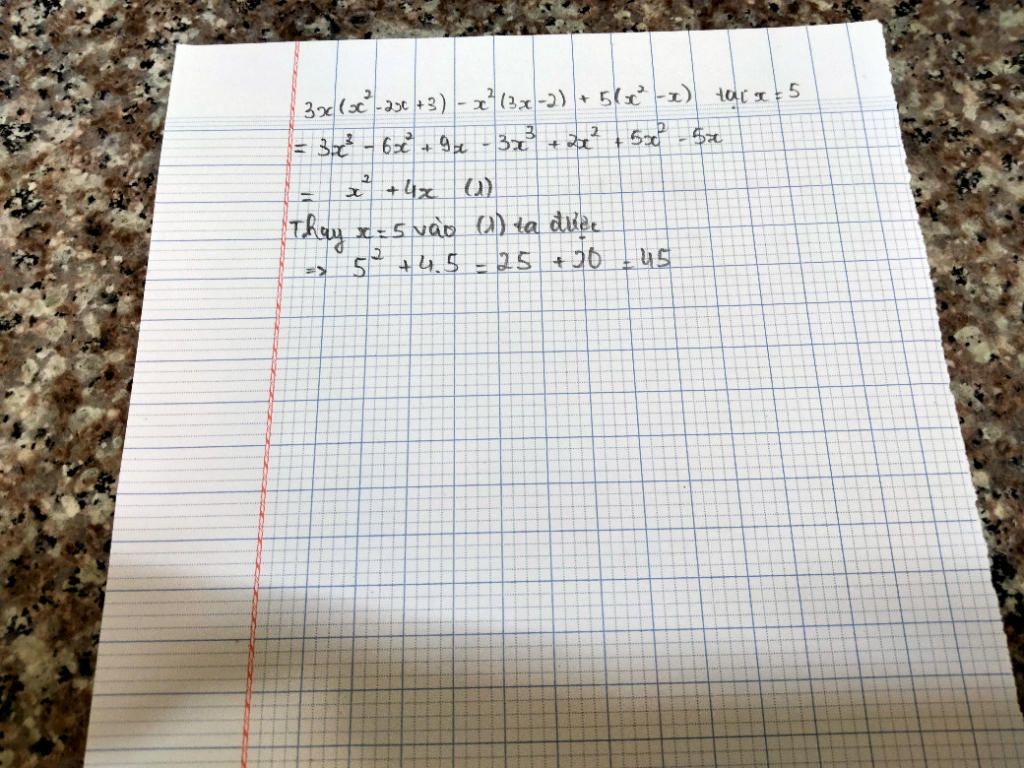 3x(x² - 2x + 3) - x²(3x - 2) + 5(x² - x) tại x = 5
= 3x³ - 6x² + 9x - 3x³ + 2x² + 5x² - 5x
= x² + 4x (1)
Thay x = 5 vào (1) ta được
=> 5² + 4.5 = 25 + 20 = 45